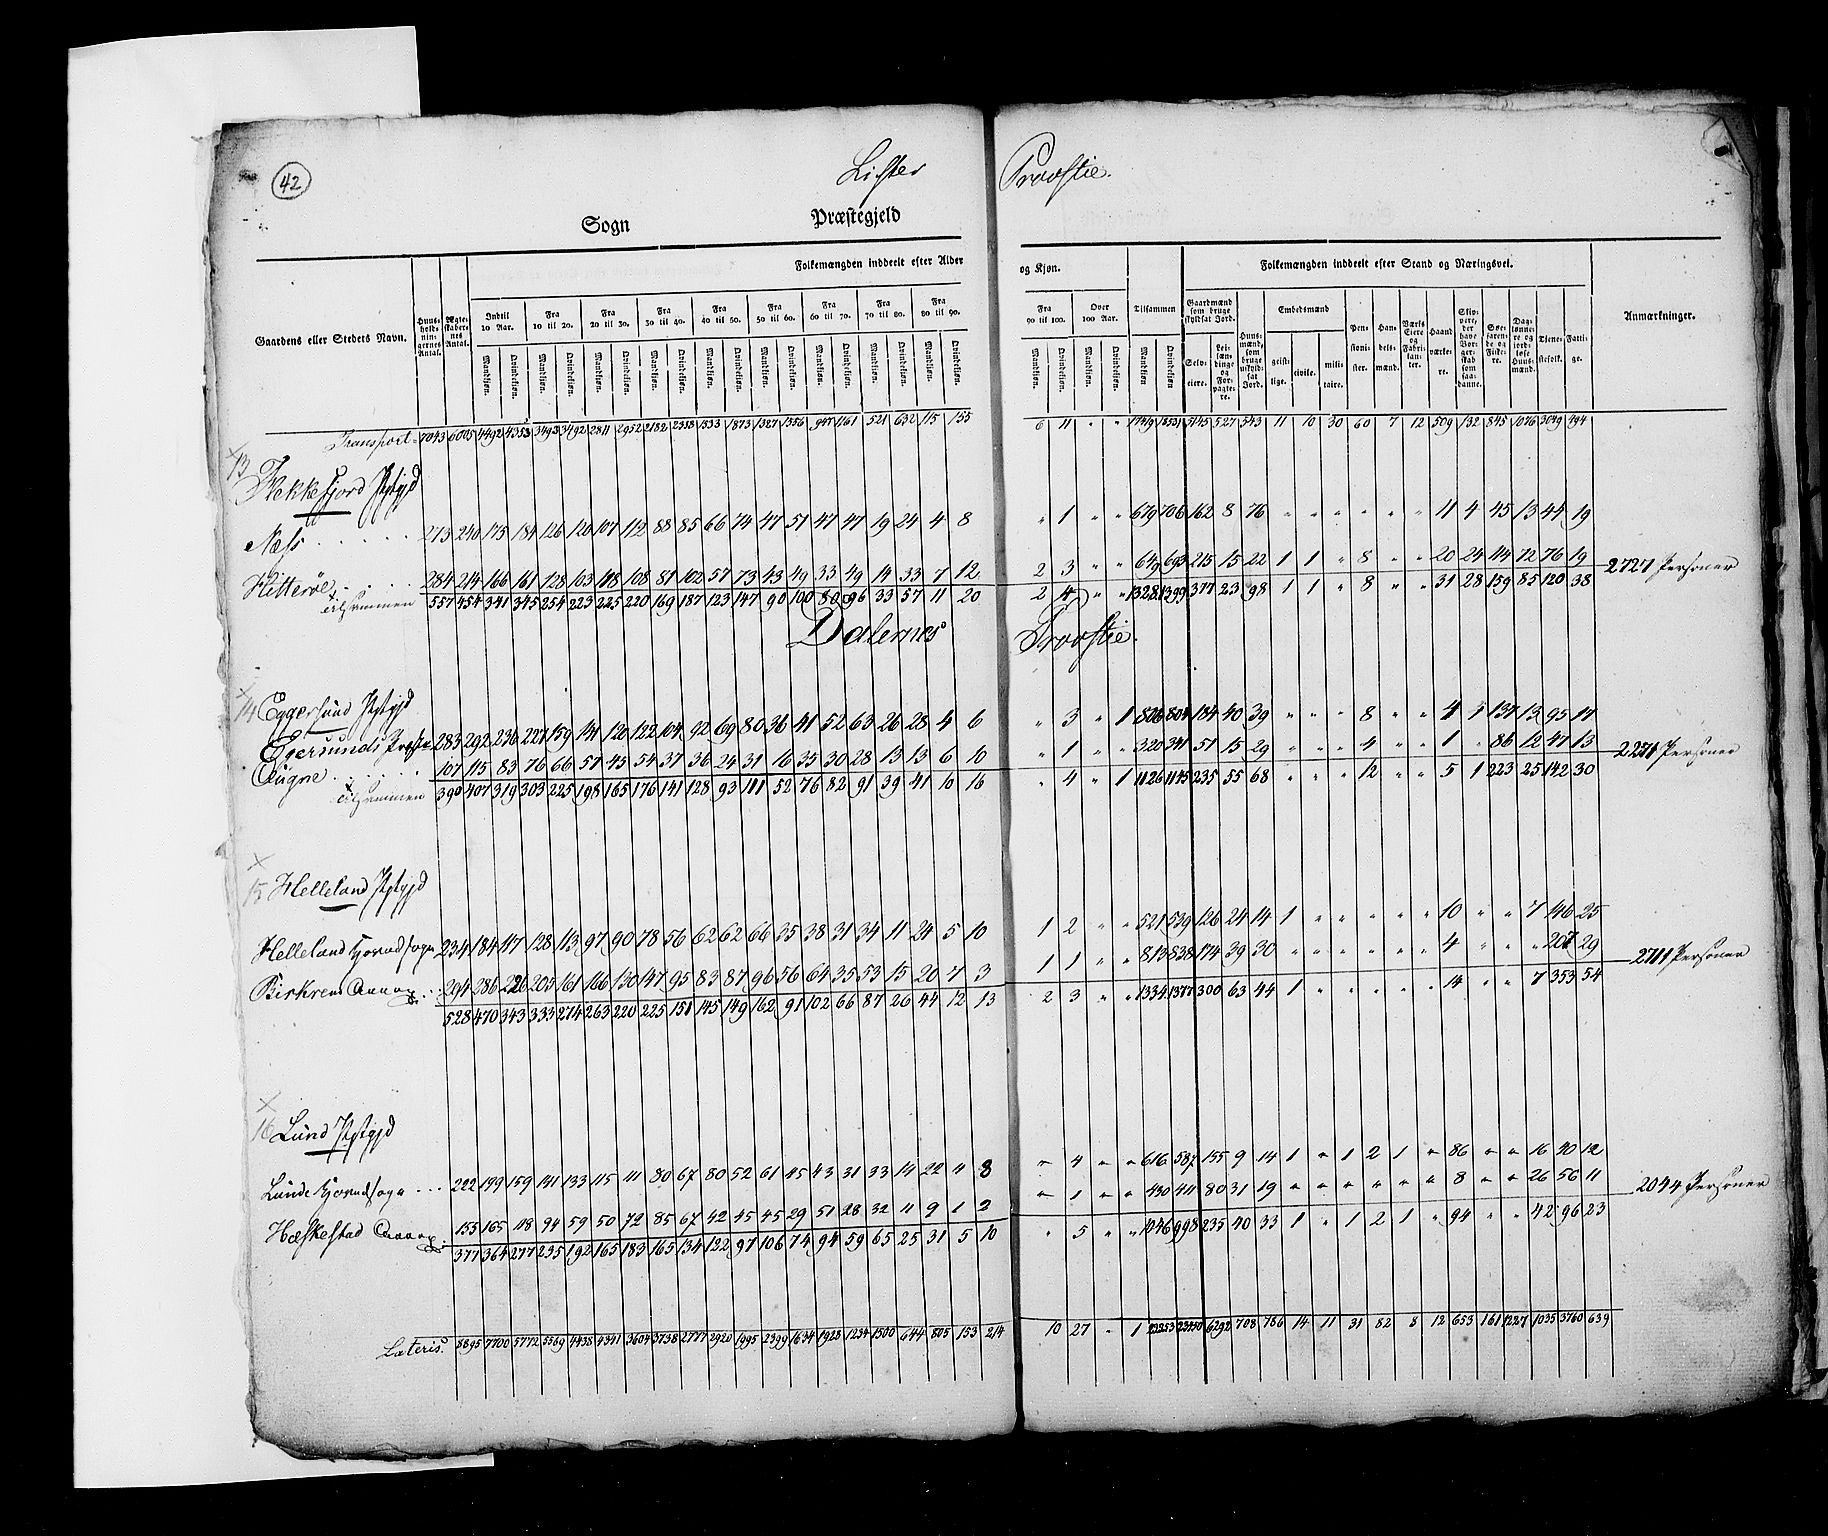 42
Lister Provstie.
Sogn Præstegjeld
Folkemængden inddeelt efter Alder og Kjøn. Folkemængden inddeelt efter Stand og Næringsvei.
Gaardens eller Stedets Navn. Huus-holdnin-gernes Antal. Ægte-skaber-nes Antal. Indtil 10 Aar. Fra 10 til 20. Fra 20 til 30. Fra 30 til 40. Fra 40 til 50. Fra 50 til 60. Fra 60 til 70. Fra 70 til 80. Fra 80 til 90. Fra 90 til 100. Over 100 Aar. Tilsammen Gaardmænd som bruge skyldsat Jord. Huus-mænd, som bruge uskyld-sat Jord. Embedsmænd Pen-sioni-ster. Han-dels-mænd. Værks Eiere og Fabri-kan-ter. Haand-værke-re. Søe-farende og Fiske-re. Dag-lønne-re og jord-løse Huus-mænd. Tjene-stefolk. Fatti-ge. Anmærkninger.
Mandkjøn. Qvindekjøn. Selv-eiere. Lei-læn-dinge og For-pagte-re. geist-lige. civile. mili-taire.
Transport 7043 6005 4492 4353 3493 3492 2811 2952 2182 2338 1533 1873 1327 1556 947 1161 521 632 115 155 6 11 " " 17419 18531 5145 527 543 11 10 30 60 7 12 509 132 845 1076 3049 494
13
Flekkefjord Pstgjd
Næss 273 240 175 184 126 120 107 112 88 85 66 74 47 51 47 47 19 24 4 8 " 1 " " 679 706 162 8 76 " " " " " " 11 4 45 13 44 19
Hitterøe 284 214 166 161 128 103 118 108 81 102 57 73 43 49 33 49 14 33 7 12 2 3 " " 649 693 215 15 22 1 1 " 8 " " 20 24 114 72 76 19 2727 Personer
tilsammen 557 454 341 345 254 223 225 220 169 187 123 147 90 100 80 96 33 57 11 20 2 4 " " 1328 1399 377 23 98 1 1 " 8 " " 31 28 159 85 120 38
Dalernes Provstie.
14 Eggersund Pstgjd
283 292 236 227 159 141 120 122 104 92 69 80 36 41 52 63 26 28 4 6 " 3 " 1 806 804 184 40 39 " " " 8 " " 4 1 137 13 95 17
Ougne 107 115 83 76 66 57 45 54 37 36 24 31 16 35 30 28 13 13 6 10 " 1 " " 320 341 51 15 29 " " " 4 " " 1 " 86 12 47 13 2271 Personer
tilsammen 390 407 319 303 225 198 165 176 141 128 93 111 52 76 82 91 39 41 10 16 " 4 " 1 1126 1145 235 55 68 " " " 12 " " 5 1 223 25 142 30
15 Helleland Pstgjd
Helleland Hovedsogn 234 184 117 128 113 97 90 78 56 62 62 66 35 38 31 34 11 24 5 10 1 2 " " 521 539 126 24 14 1 " " " " " 10 " " 7 146 25
Birkrem Annex 294 286 226 205 161 166 130 147 95 83 87 96 56 64 35 53 15 20 7 3 1 1 " " 813 838 174 39 30 " " " " " " 4 " " " 207 29 2711 Personer
528 470 343 333 274 263 220 225 151 145 149 162 91 102 66 87 26 44 12 13 2 3 " " 1334 1377 300 63 44 1 " " " " " 14 " " 7 353 54
16 Lund Pstgjd
Lunde Hovedsogn 222 199 159 141 133 115 111 80 67 80 52 61 45 43 31 33 14 22 4 8 " 4 " " 616 587 155 9 14 1 " 1 2 1 " 86 " " 16 40 12
Hæskestad Annex 155 165 118 94 59 50 72 85 67 42 45 45 29 51 28 32 11 9 1 2 " 1 " " 430 411 80 31 19 " " " " " " 8 " " 26 56 11 2044 Personer
377 364 277 235 192 165 183 165 134 122 97 106 74 94 59 65 25 31 5 10 " 5 " " 1046 998 235 40 33 1 " 1 2 1 " 94 " " 42 96 23
Lateris. 8895 7700 5772 5569 4438 4341 3604 3738 2777 2920 1995 2399 1634 1928 1234 1500 644 805 153 214 10 27 " 1 22253 23450 6292 708 786 14 11 31 82 8 12 653 161 1227 1035 3760 639